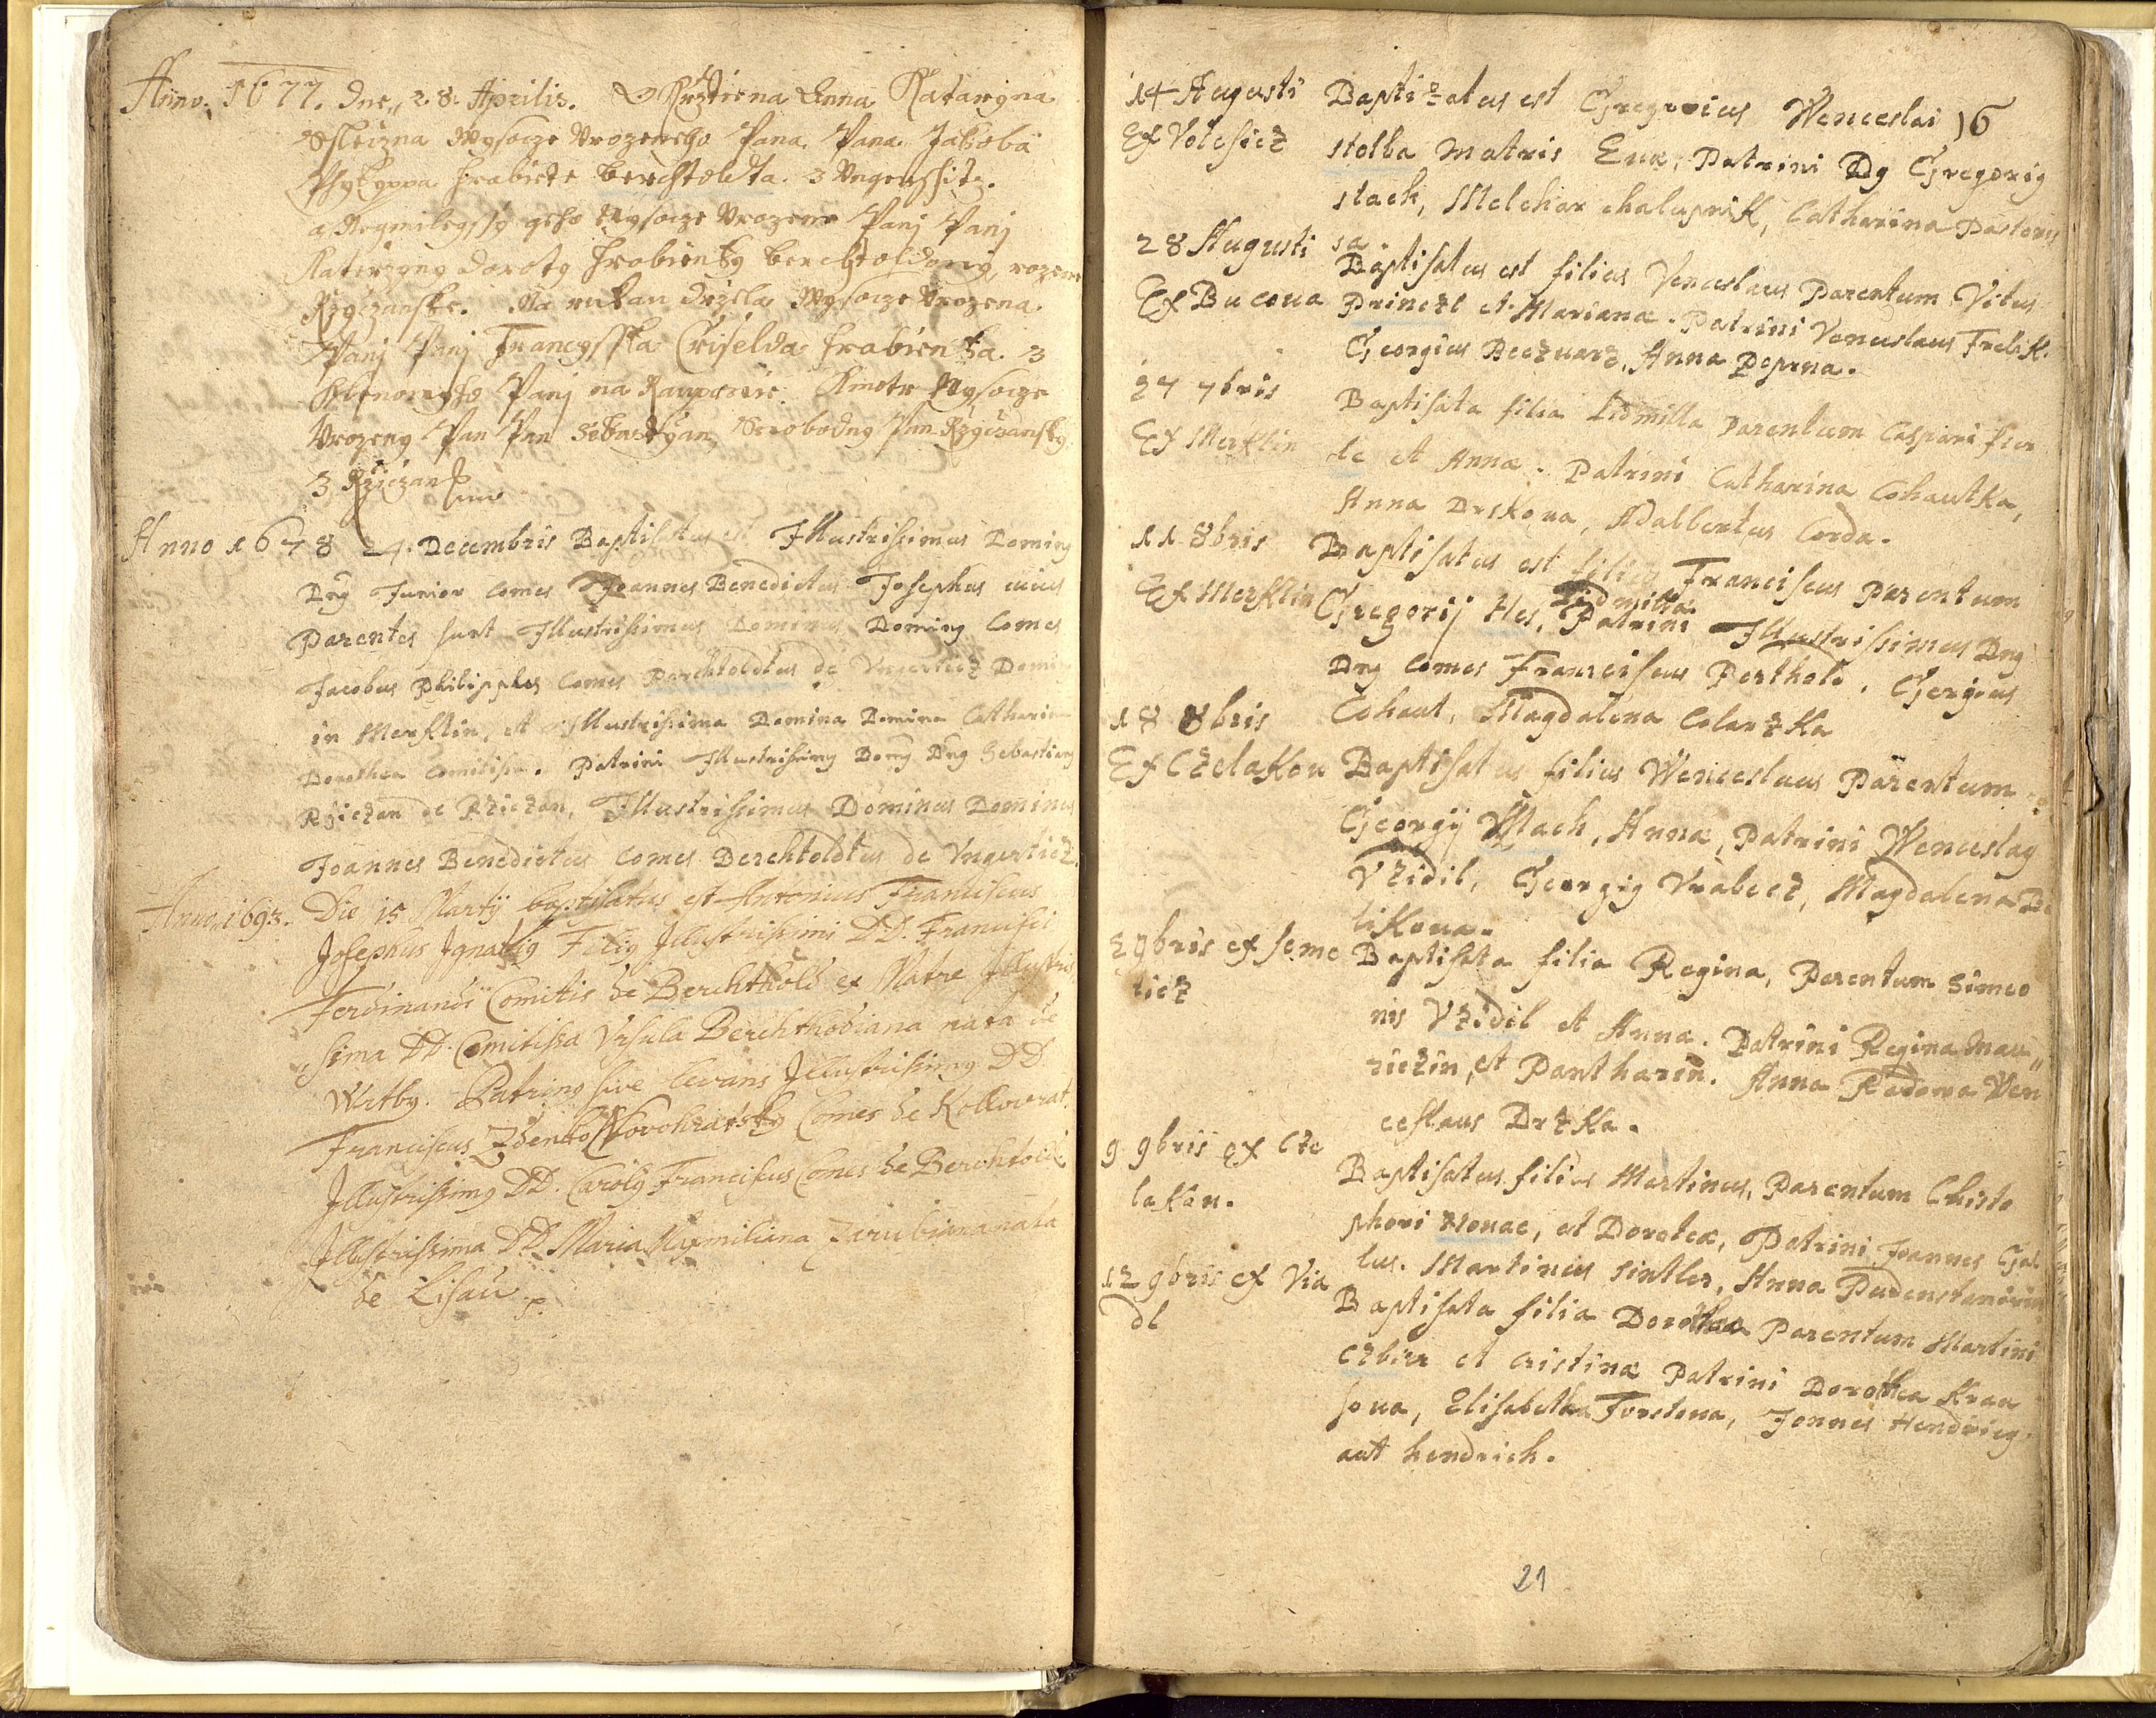 Anno. 1677. Dne 28. Aprilis. Krztiena Anna Katarzyna
Slecżna Wysocze Urozeneho Pana, Pana Jakoba
Phylyppa hrabiete Berchtoldta. z Ungerssitz.
a Neymilegssy geho Wysocze Urozene Panj Panj
Katerzyny Doroty hrabienky Berchtoldowy, rozene
Rzyczanske. Na rukau držela Wysocze Urozena
Panj Panj Francysska Criselda hrabienka z
Panj na. Kmotr Wysocze
Urozeny Pan Pan Sebastyan, Swobodny Pan Rzyczansky
z Rziczan
Anno 1678 24. Decembris Baptisatus est Illustrissimus Doming
Dng Junior Comes Joannes Benedictus Josephus cuius
Parentes sunt Illustrissimus Dominus Doming Comes
Jacobus Philippus Comes Parchtoldtus de Vngertiez Domi
in Merklin, et Illustrissima Domina Domina Catharina
Dorothea Comitissa. Patrini Illustrissimg Domg Dng Sebastiang
Rziczan de Rziczan, Illustrissimus Dominus Dominus
Joannes Benedictus Comes Berchtoldtus de Vngertiez.
Anno 1693. Die 15 Martÿ baptisatus est Antonius Franciscus
Josephus Ignatig Filig Illustrissimi DD. Francisci
Ferdinandi Comitis de Berchthold ex Matre Illustris
sima DD. Comitissa Ursula Berchtholdiana nata de
Wrtby. Patring sive levans Illustrissimg DD
Franciscus Zdenko Novohradsky Comes de Kollowrat.
Illustrissimg DD. Carolg Franciscus Comes de Berchtold
Illustrissima DD. Maria Maxmiliana Zarubiana nata
de Lisau
16
14 Augusti Baptizatus est Gregorius Wenceslai
Ex Volesicz stolba Matris Euæ, Patrini Dg Gregorig
stach, Melchar chalupnik, Catherina Pastoris
sa
28 Augusti Baptisatus est filius Venceslaus Parentum Vitus
Ex Bucoua Princzl et Mariana. Patrini Venceslaus Frelik.
Georgius Beczuarz, Anna Peprna.
27 7bris Baptisata filia Lidmilla Parentum Caspari
Ex Merklin le et Annæ. Patrini Catharina Cohautka,
Anna Drskoua, Adalbertus Corda.
11 8bris Baptisatus est filius Franciscus Parentum
Lidmilla
Ex Merklin Gregorij Hes, Patrini Illustrissimus Dng
Dng Comes Franciscus Perthold. Gergius
Cohaut, Magdalena Colarzka
18 8bris
Ex Czelakou Baptisatus filius Wenceslaus Parentum
Georgij Mach, Annæ, Patrini Wenceslag
Vzidil, Georgig Vrabecz, Magdalena Be
likoua.
2 9bris ex seme Baptisata filia Regina, Parentum Simeo
ticz nis Vzidil et Anna. Patrini Regina Mau
riczin, et Panthazin. Anna Radoua Ven
ceslaus Drzka.
9 9bris ex Cze Baptisatus filius Martinus, Parentum Christo
lakou. phori Nouac, et Doroteæ, Patrini Joannes Gal
lus. Martinus sintler, Anna
12 9bris ex Via Baptisata filia Dorothea Parentum Martini
dl Czbier et Cristinæ Patrini Dorothea Krau
soua, Elisabetha Forstoua, Jonnes Hendrieg
aut hendrich.
21